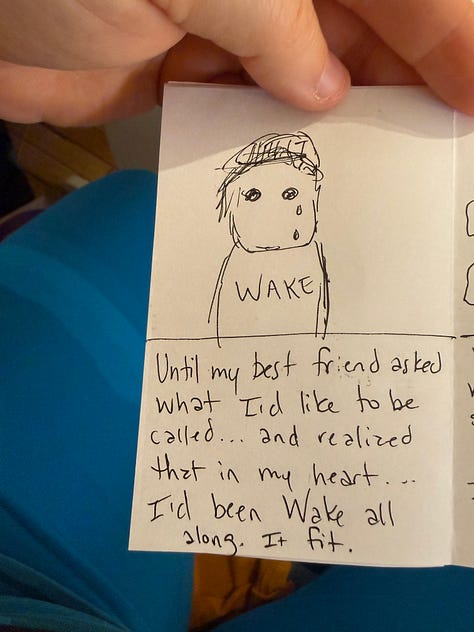 WAKE
Until my best friend asked
what I'd like to be
called... and realized
that in my heart...
I'd been Wake all
along. It fit.